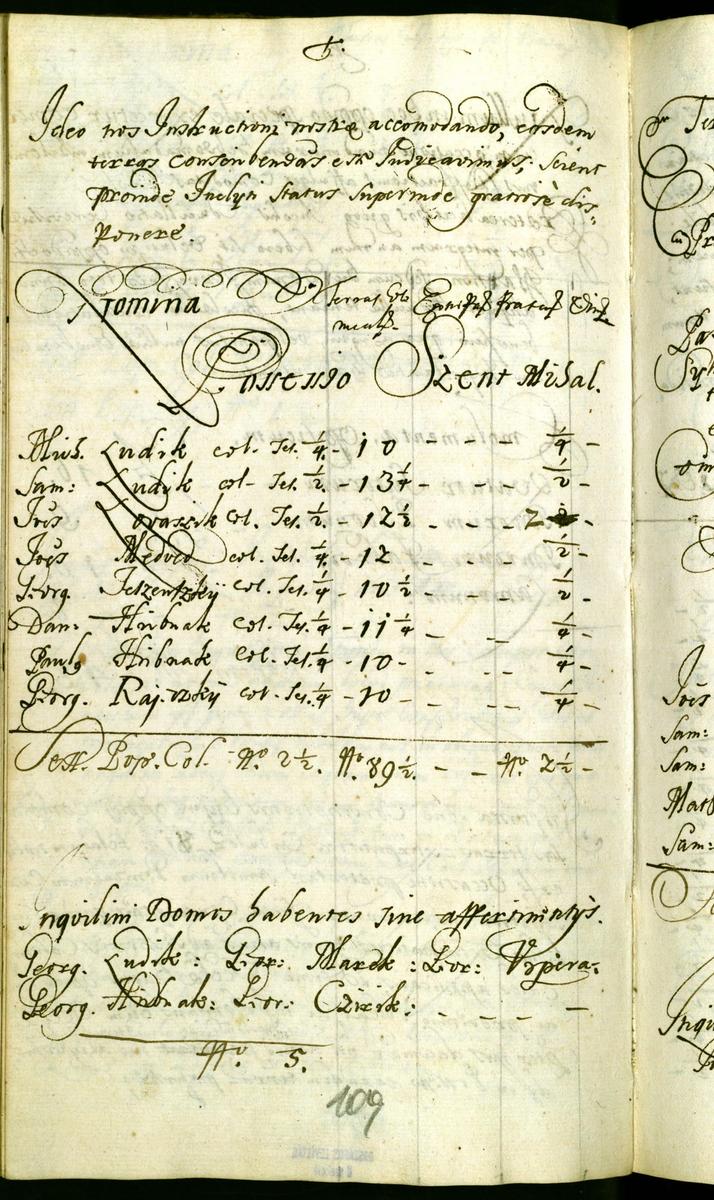 5.
Ideo nos Instructioni nostræ accomodando, easdem
terras conscribendas esse Judicavimus; scient
proinde Inclyti Status Superinde gratiose dis:
ponere.
Nomina Terras
Possessio Szent Mihal.
Mich. Ludik col. Ses. 1/4 - 10 - - - 1/4 -
Sam: Ludik col- Ses. 1/2 - 13 1/4 - - - 1/2 -
Jōēs Lovaszik col. Ses. 1/2 - 12 1/2 - - - 2 -
Jōēs Medved col. Ses. 1/4 - 12 - - - 1/2 -
Georg. col. Ses. 1/4 - 10 1/2 - - - 1/2 -
Dan: Hribnak col. Ses. 1/4 - 11 1/4 - - - 1/4 -
Paulg Hribnak col. Ses. 1/4 - 10 - - - - 1/4 -
Georg. Rajczkÿ col. Ses. 1/4 - 10 - - - - 1/4 -
Sess. Pop. Col. Nº 2 1/2. Nº 89 1/2. - - Nº 2 1/2 -
Inquilini Domos habentes sine appertinentÿs.
Georg. Ludik: Marek:
Georg. Hribnak: Czirik: - - - -
Nº 5.
109